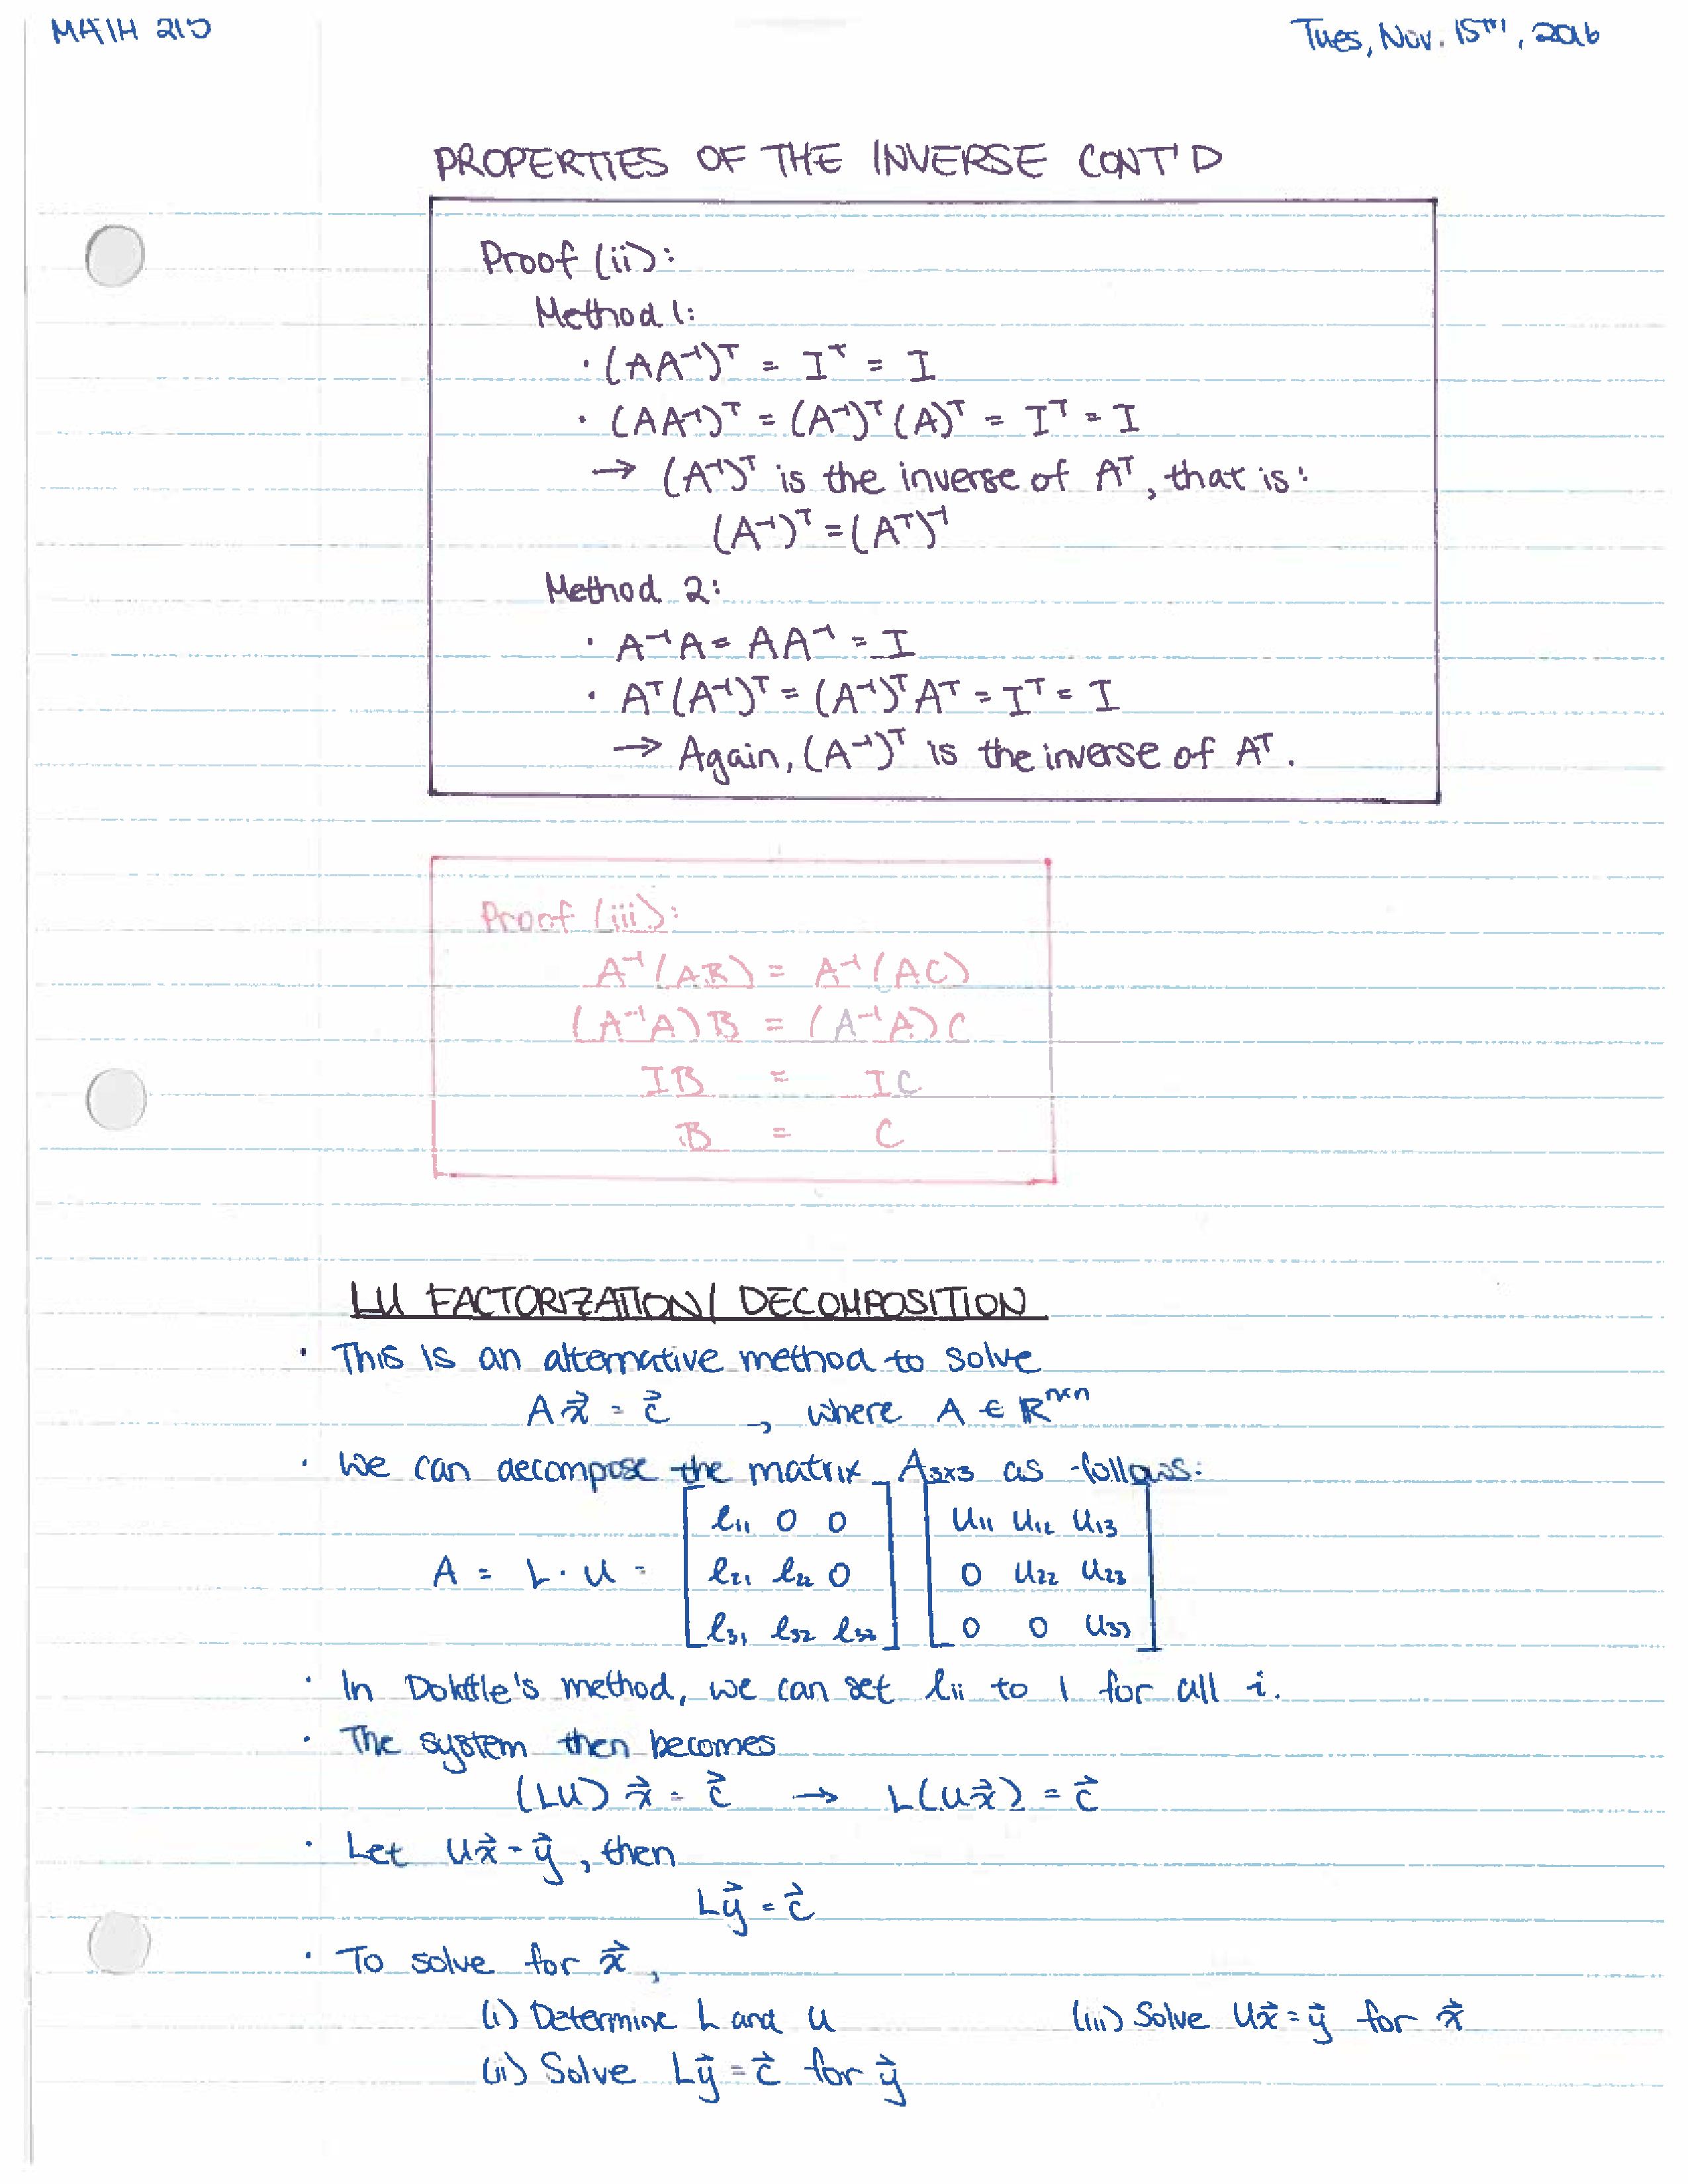 MATH 215
Tues, Nov. 15TH, 2016
PROPERTIES OF THE INVERSE CONT'D
Proof (ii):
Method 1:
· (AA⁻¹)ᵀ = Iᵀ = I
· (AA⁻¹)ᵀ = (A⁻¹)ᵀ(A)ᵀ = Iᵀ = I
→ (A⁻¹)ᵀ is the inverse of Aᵀ, that is:
(A⁻¹)ᵀ = (Aᵀ)⁻¹
Method 2:
· A⁻¹A = AA⁻¹ = I
· Aᵀ(A⁻¹)ᵀ = (A⁻¹)ᵀAᵀ = Iᵀ = I
→ Again, (A⁻¹)ᵀ is the inverse of Aᵀ.
Proof (iii):
A⁻¹(AB) = A⁻¹(AC)
(A⁻¹A)B = (A⁻¹A)C
IB = IC
B = C
LU FACTORIZATION/ DECOMPOSITION
· This is an alternative method to solve
Ax⃗ = c⃗ , where A ∈ ℝⁿˣⁿ
· We can decompose the matrix A₃ₓ₃ as follows:
ℓ₁₁ 0 0 u₁₁ u₁₂ u₁₃
A = L · U = ℓ₂₁ ℓ₂₂ 0 0 u₂₂ u₂₃
ℓ₃₁ ℓ₃₂ ℓ₃₃ 0 0 u₃₃
· In Dolittle's method, we can set ℓᵢᵢ to 1 for all i.
· The system then becomes
(LU)x⃗ = c⃗ → L(Ux⃗) = c⃗
· Let Ux⃗ = y⃗, then
Ly⃗ = c⃗
· To solve for x⃗,
(i) Determine L and U (iii) Solve Ux⃗ = y⃗ for x⃗
(ii) Solve Ly⃗ = c⃗ for y⃗